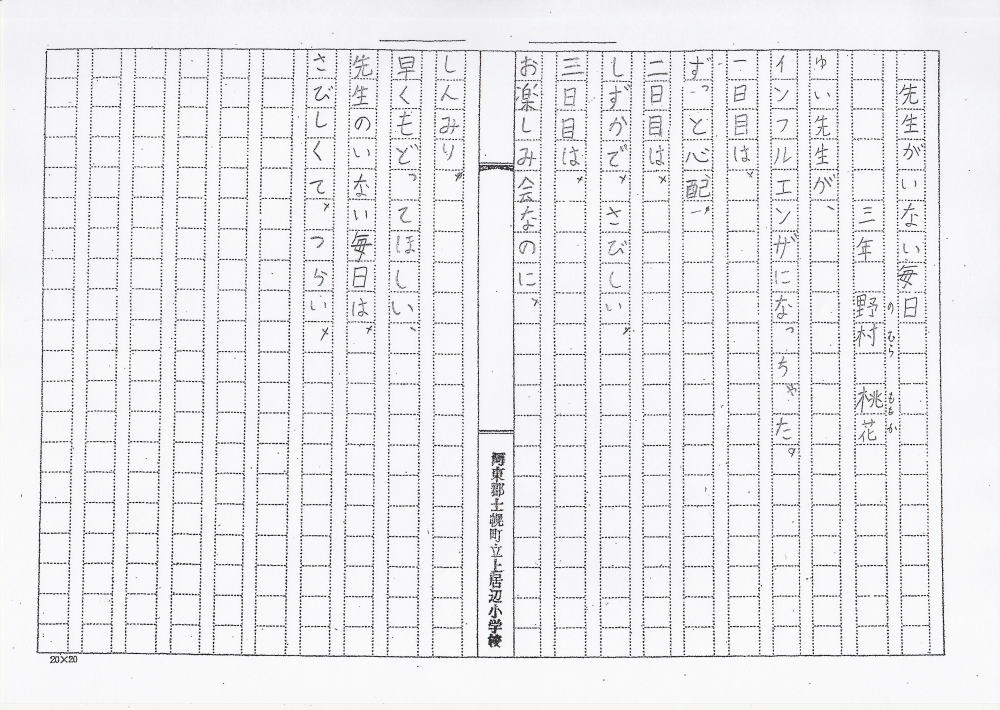 先生がいない毎日
のむら ももか
三年 野村 桃花
ゆい先生が、
インフルエンザになっちゃた。
一日目は
ずっと心配
二日目は
しずかで さびしい
三日目は
お楽しみ会なのに
しんみり
早くもどってほしい、
先生のいない毎日は
さびしくて。つらい
河東郡士幌町立上居辺小学校
20×20